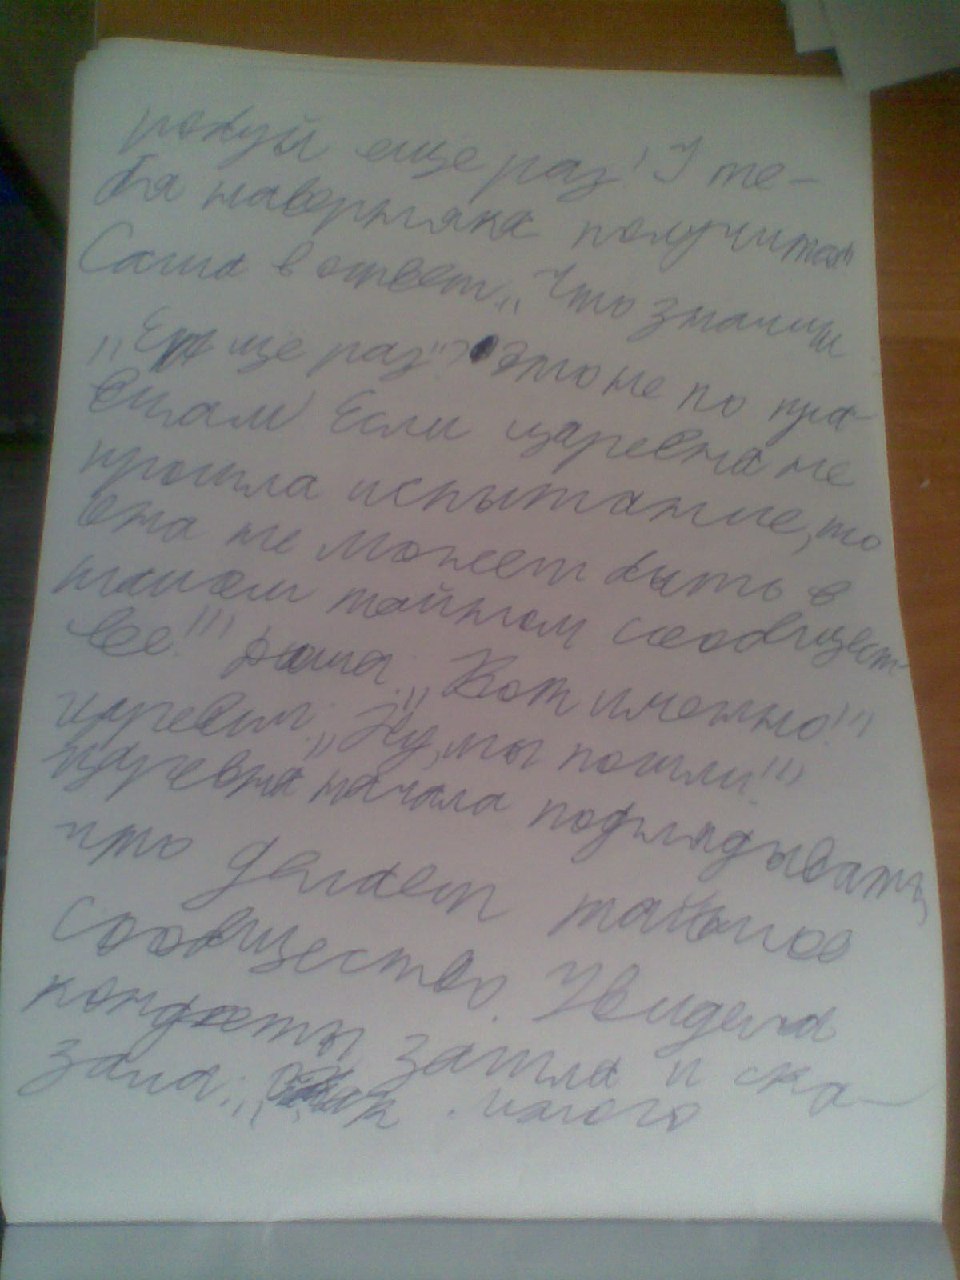 робуй еще раз! У те-
бя наверняка получится
Саша в ответ „Что значит
„Еще раз"? Это не по пра-
вилам! Если царевна не
прошла испытание, то
она не может быть в
нашем тайном сообщест-
ве!!" Даша: „Вот именно!"
царевны: „Ну, мы пошли!"
Царевна начала подглядывать,
что делает тайное
сообщество. Увидела
конфеты зашла и ска-
зала: „ много